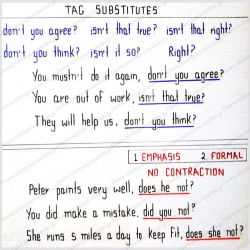 TAG SUBSTITUTES
don't you agree? isn't that true? isn't that right?
don't you think? isn't it so? Right?
You mustn't do it again, don't you agree?
You are out of work, isn't that true?
They will help us, don't you think?
1 EMPHASIS 2 FORMAL
NO CONTRACTION
Peter paints very well, does he not?
You did make a mistake, did you not?
She runs 5 miles a day to keep fit, does she not?